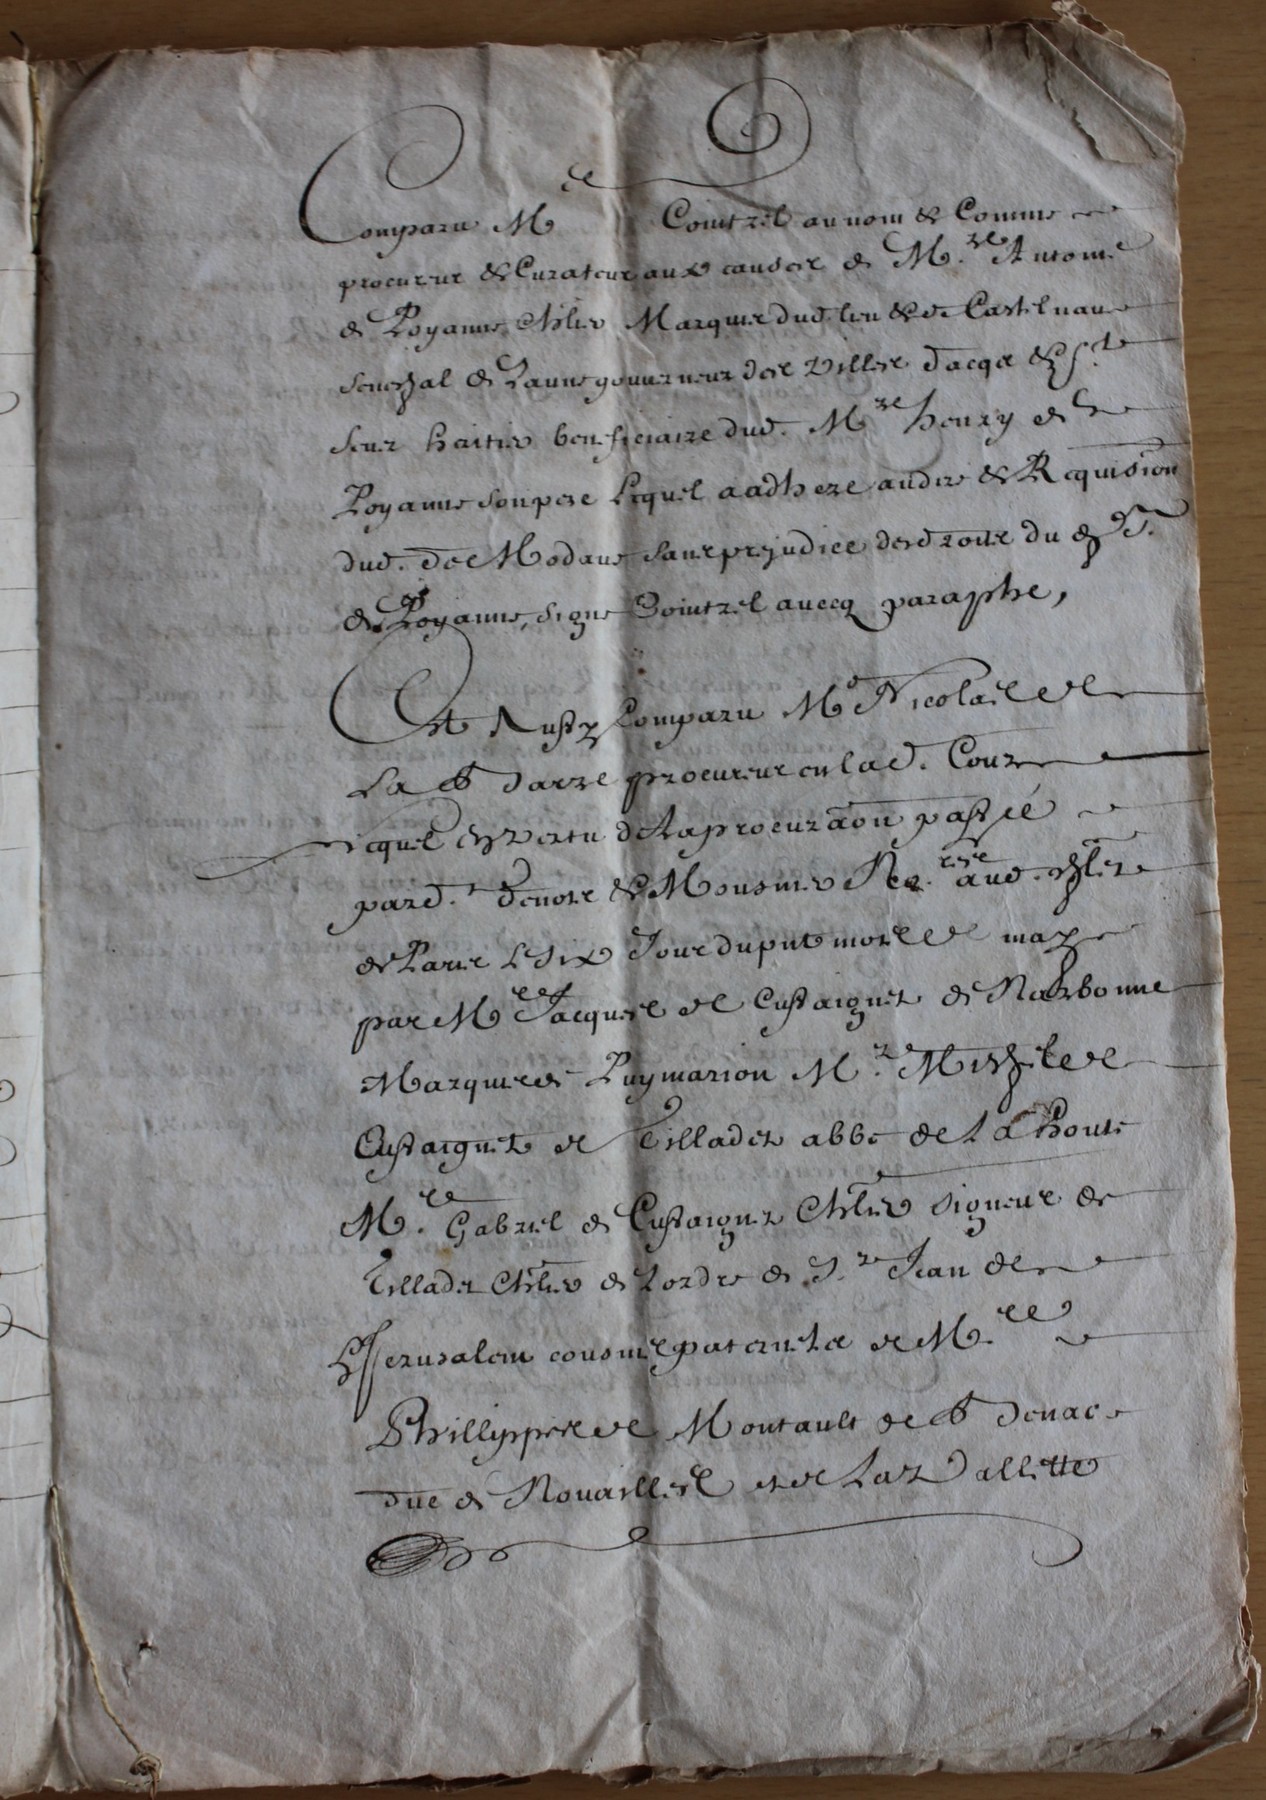 Comparu Me Cointrel au nom & Comme
procureur & Curateur aux causes de M.re Antoine
de Poyanne Chlier Marquis dud. lieu & de Castelnau
senechal de Lanne gouverneur des Villes dacqs & St
sever haitier beneficiaire dud. Mre henry de
Poyanne son pere lequel a adhere au dire & Requision
dud. de Modave sans prejudice des droits du d. Sr.
de Poyanne, signe Cointrel avecq paraphe,
Et Aussy Comparu Me Nicolas de
La B darre procureur en lad. Cour
lequel en vertu de la procuraon passée
par d. denots & Mousnier No.res aud. chlet
de Paris le six Jour du pnt mois de may
par Mre Jacques de Custaignet de Narbonne
Marquis de Puymarion M.re Michel de
Custaignet de Tilladet abbé de La Honte
M.re Gabriel de Custaignet Chlier signeur de
Tilladet Chlier de Lordre de St Jean de
Jerusalem cousins paternels de M.re
Phillippes de Montault de B denac
duc de Nouailles et de Lavallette